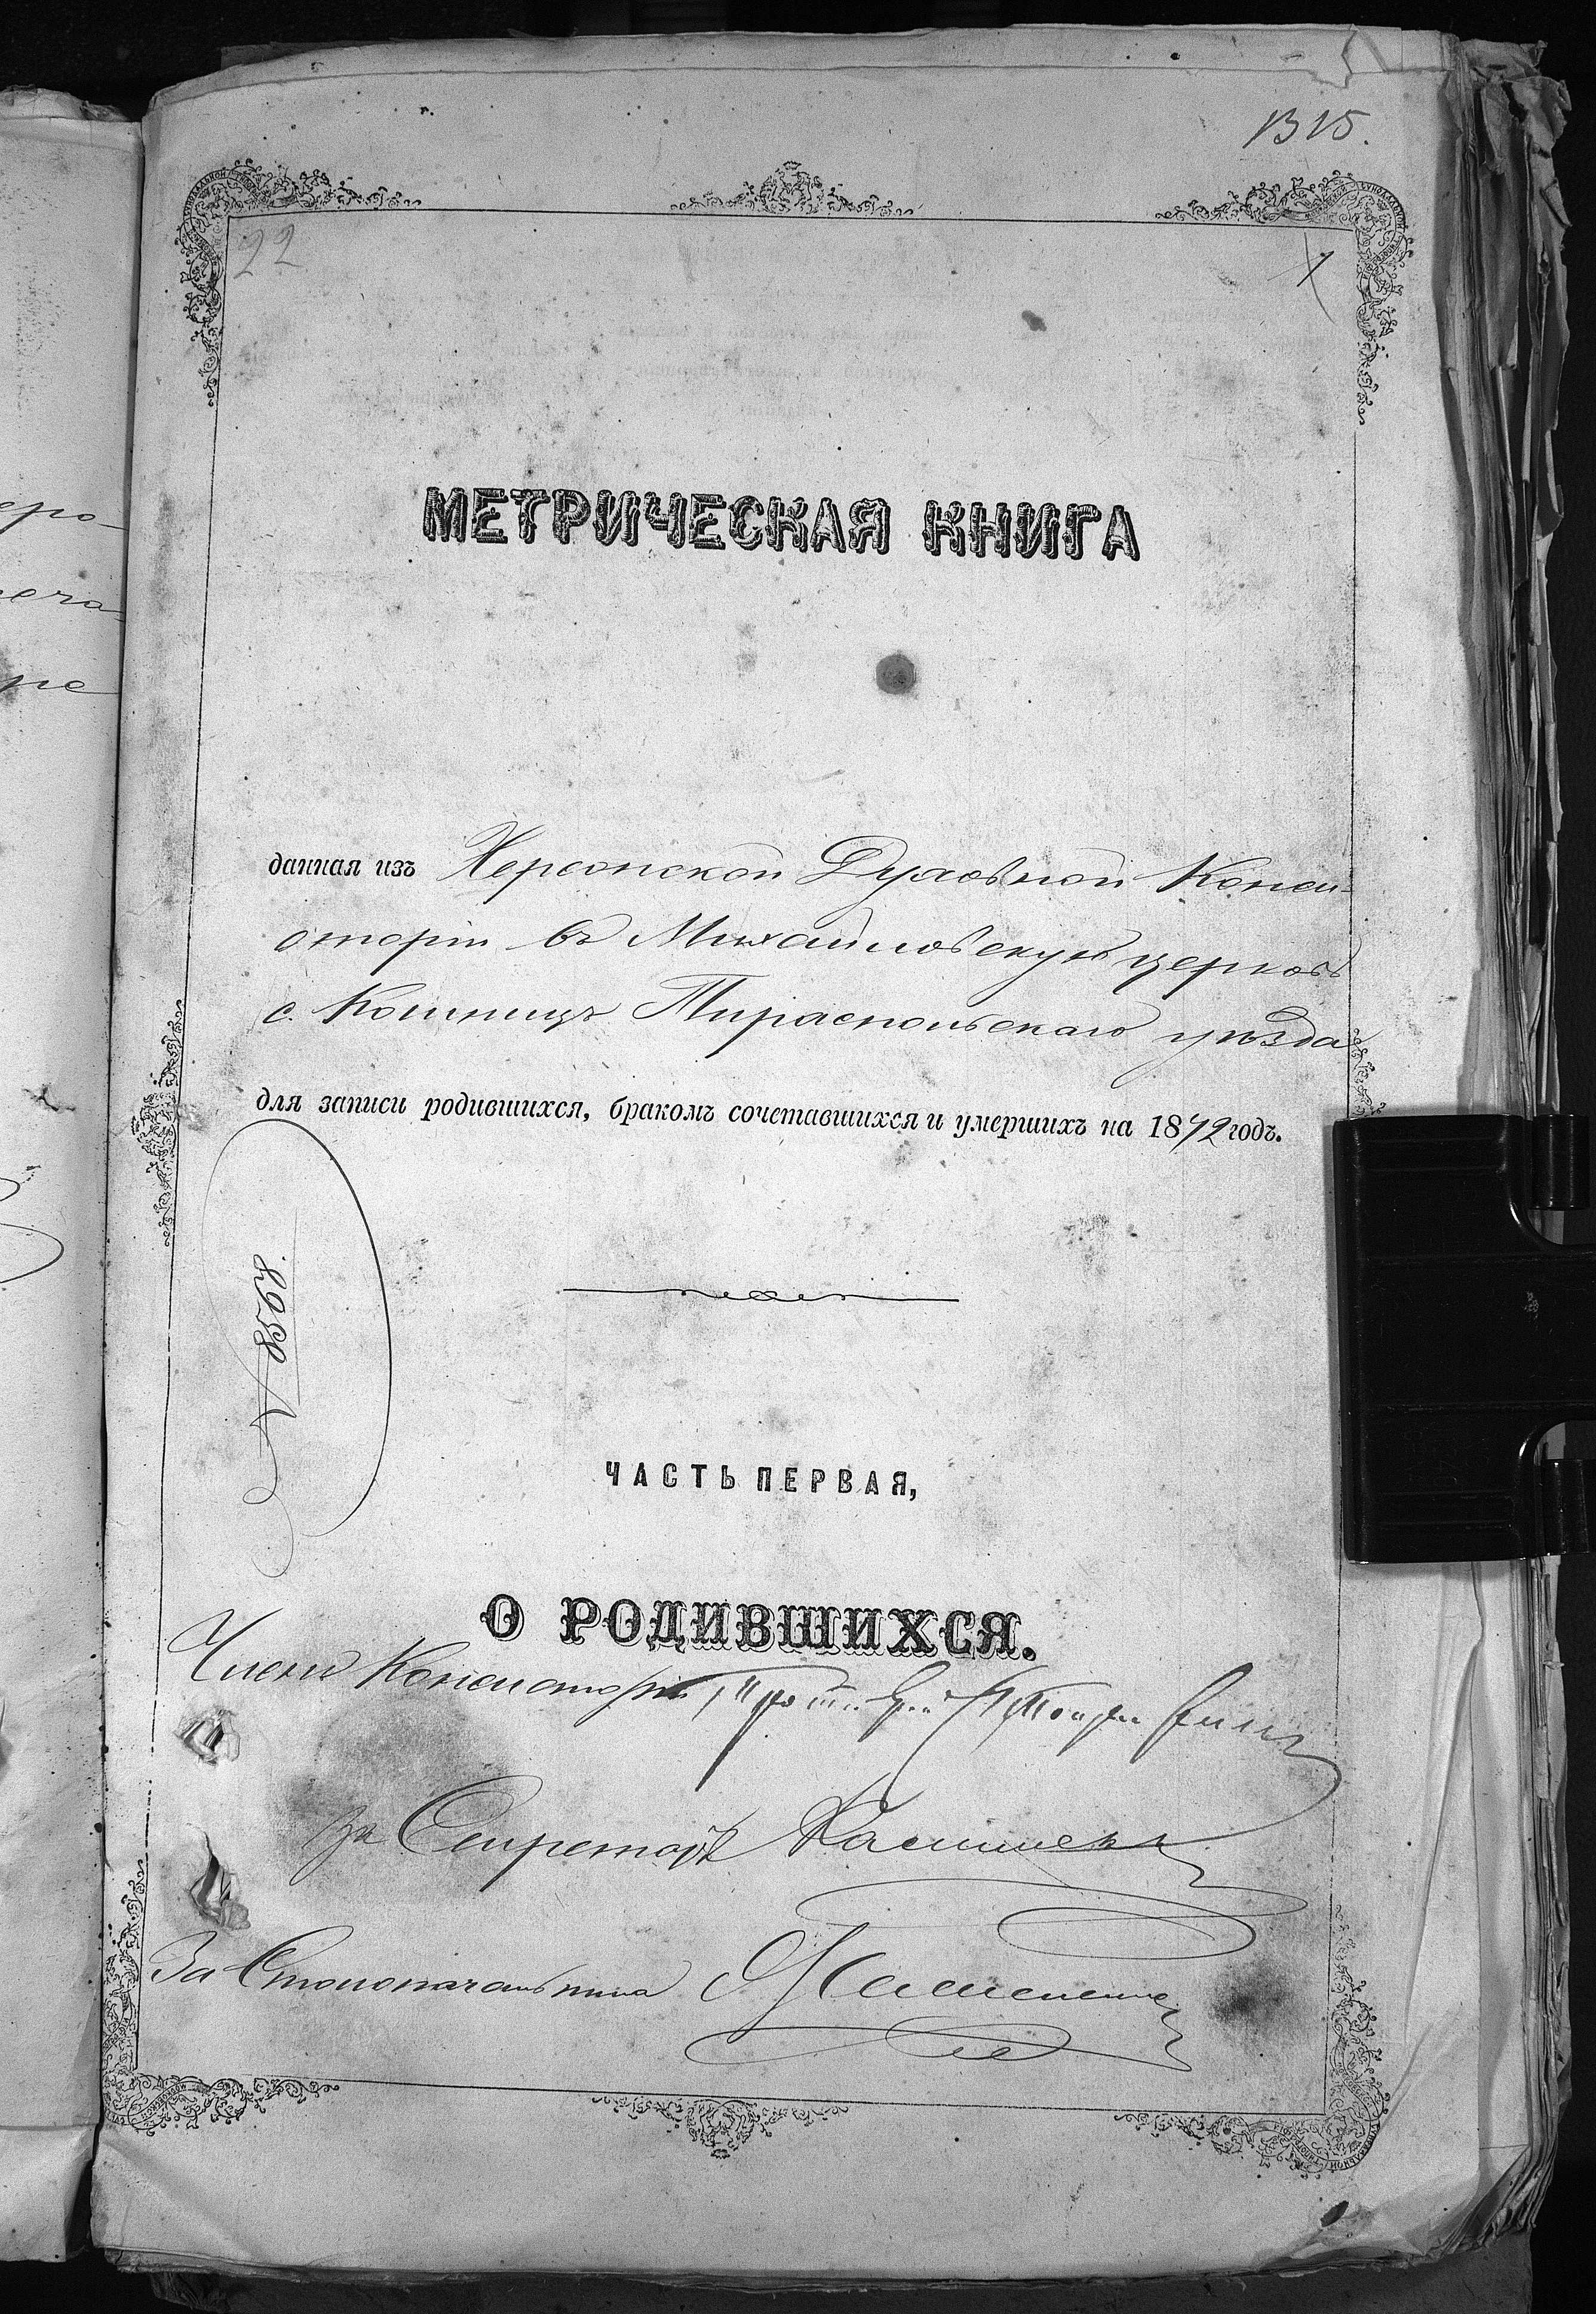 1315.
22
1
МЕТРИЧЕСКАЯ КНИГА
данная изъ Херсонской Духовной Конси-
сторіи въ Михайловскую церковь
с. Кошницъ Тираспольскаго уѣзда
для записи родившихся, бракомъ сочетавшихся и умершихъ на 1872 годъ.
№ 8568.
ЧАСТЬ ПЕРВАЯ,
О РОДИВШИХСЯ.
Членъ Консисторіи, Протоіерей
За Секретаря
За Столоначальника